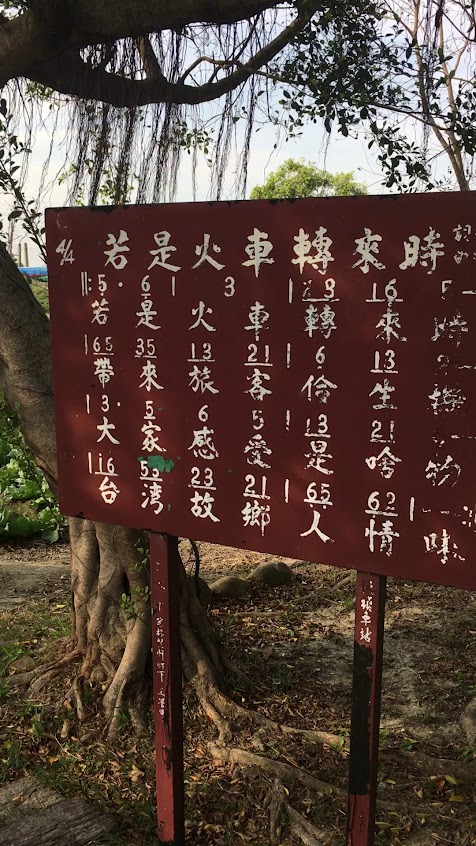 4/4 若是火車轉來時
‖: 5· 6 1 3 | 23 16 5
若是火車轉來時
| 65 35 13 21 | 6 13
帶來旅客儉生
| 3· 5 6 5 | 13 21
大家感愛是啥物
| 16 55 23 21 | 65 62 |
台灣故鄉人情味
車站